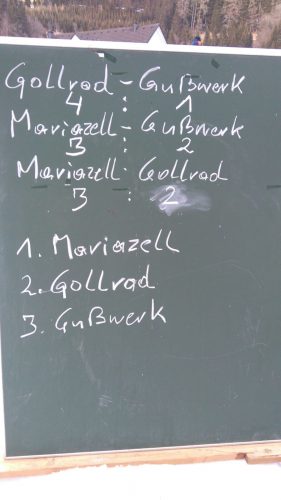 Gollrad - Gußwerk
4 : 1
Mariazell - Gußwerk
3 : 2
Mariazell - Gollrad
3 : 2
1. Mariazell
2. Gollrad
3. Gußwerk